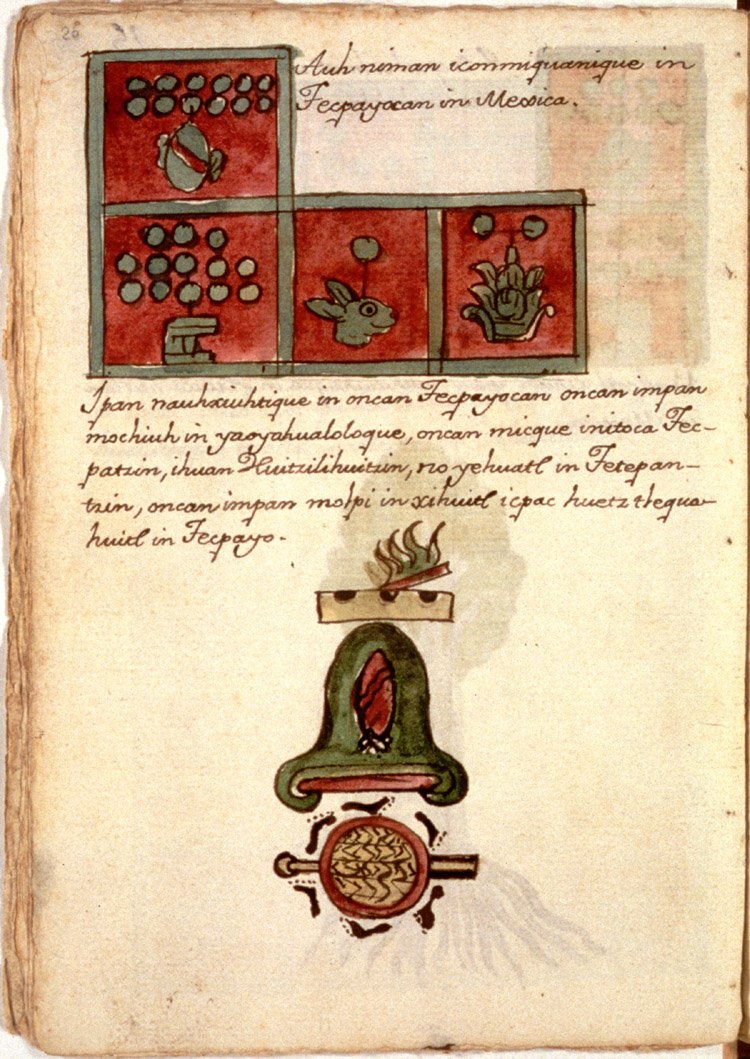 26
Auh niman iconmiquanique in
Tecpayocan in Mexica.
Ipan nauhxiuhtique in oncan Tecpayocan oncan impan
mochiuh in yaoyahualoloque, oncan micque initoca Tec-
patzin, ihuan Huitzilihuitzin, no yehuatl in Tetepan-
tzin, oncan impan molpi in xihuitl icpac huetz tlequa-
huitl in Tecpayo.